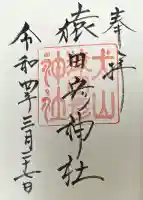 奉拝
猿田彦神社
令和四年三月二十七日
犬山
神社